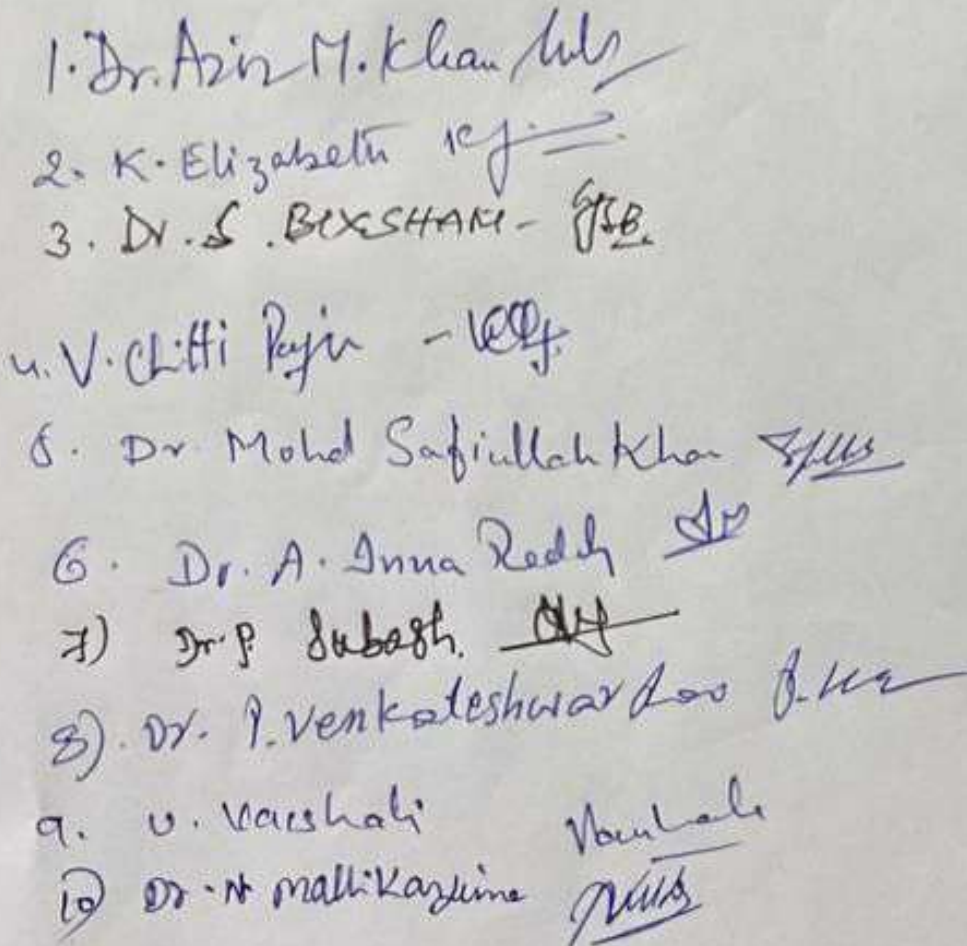 1. Dr. Aziz M. Khan
2. K. Elizabeth
3. Dr. S. BIXSHAM -
4. V. Chitti Raju -
5. Dr Mohd Safiullah Khan
6. Dr. A. Inna Reddy
7) Dr. P. Subash.
8). Dr. P. Venkateshwar Rao
9. U. Vaishali Vaishali
10) Dr. N Mallikarjuna